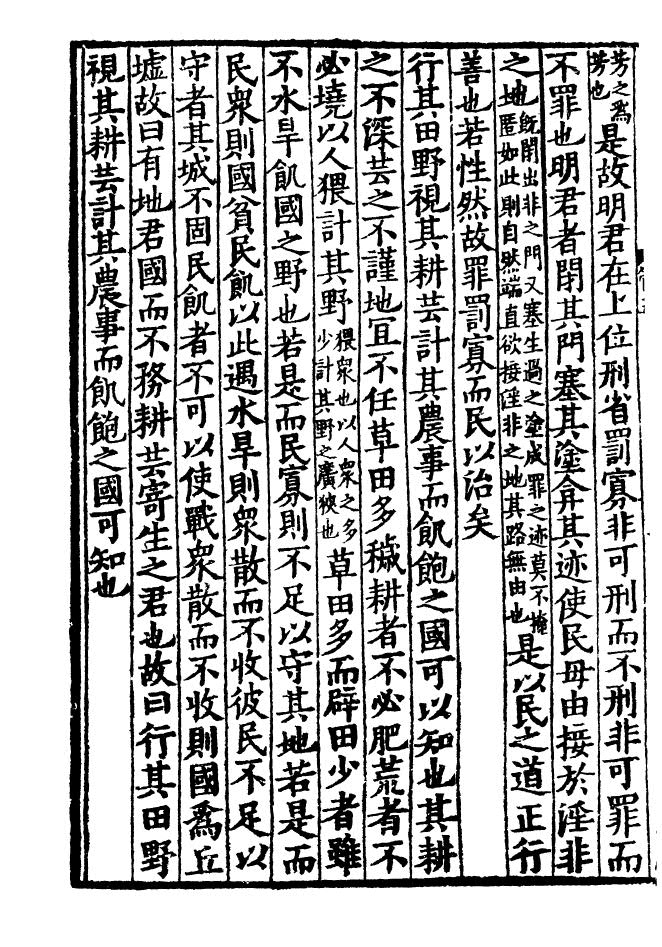 芳之為芳也是故明君在上位刑省罰寡非可刑而不刑非可罪而
不罪也明君者閉其門塞其塗弇其迹使民毋由接於淫非
之地既閉出非之門又塞生過之塗成罪之迹莫不掩匿如此則自然端直欲接淫非之地其路無由也是以民之道正行
善也若性然故罪罰寡而民以治矣
行其田野視其耕芸計其農事而飢飽之國可以知也其耕
之不深芸之不謹地宜不任草田多穢耕者不必肥荒者不
必墝以人猥計其野猥衆也以人衆之多少計其野之廣狹也草田多而辟田少者雖
不水旱飢國之野也若是而民寡則不足以守其地若是而
民衆則國貧民飢以此遇水旱則衆散而不收彼民不足以
守者其城不固民飢者不可以使戰衆散而不收則國為丘
墟故曰有地君國而不務耕芸寄生之君也故曰行其田野
視其耕芸計其農事而飢飽之國可知也